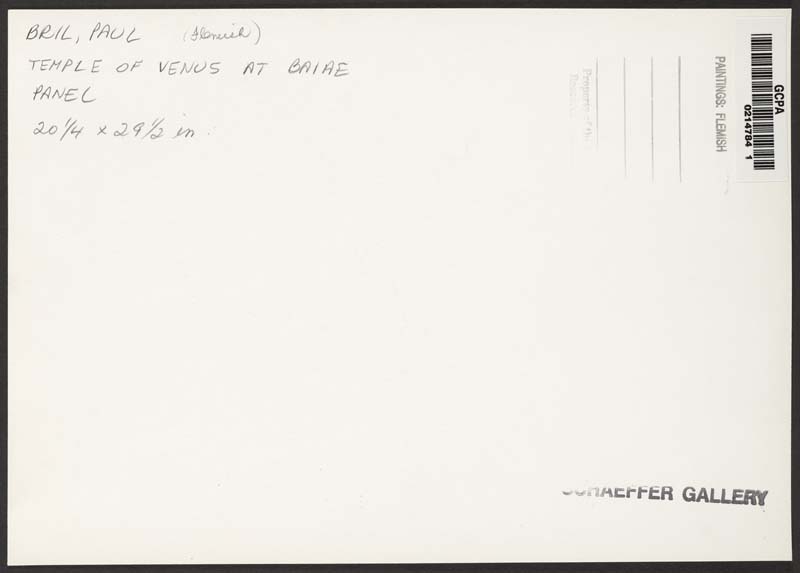 BRIL, PAUL (Flemish)
TEMPLE OF VENUS AT BAIAE
PANEL
20 1/4 x 29 1/2 in.
Property of the
PAINTINGS: FLEMISH
GCPA
0214784 1
SCHAEFFER GALLERY